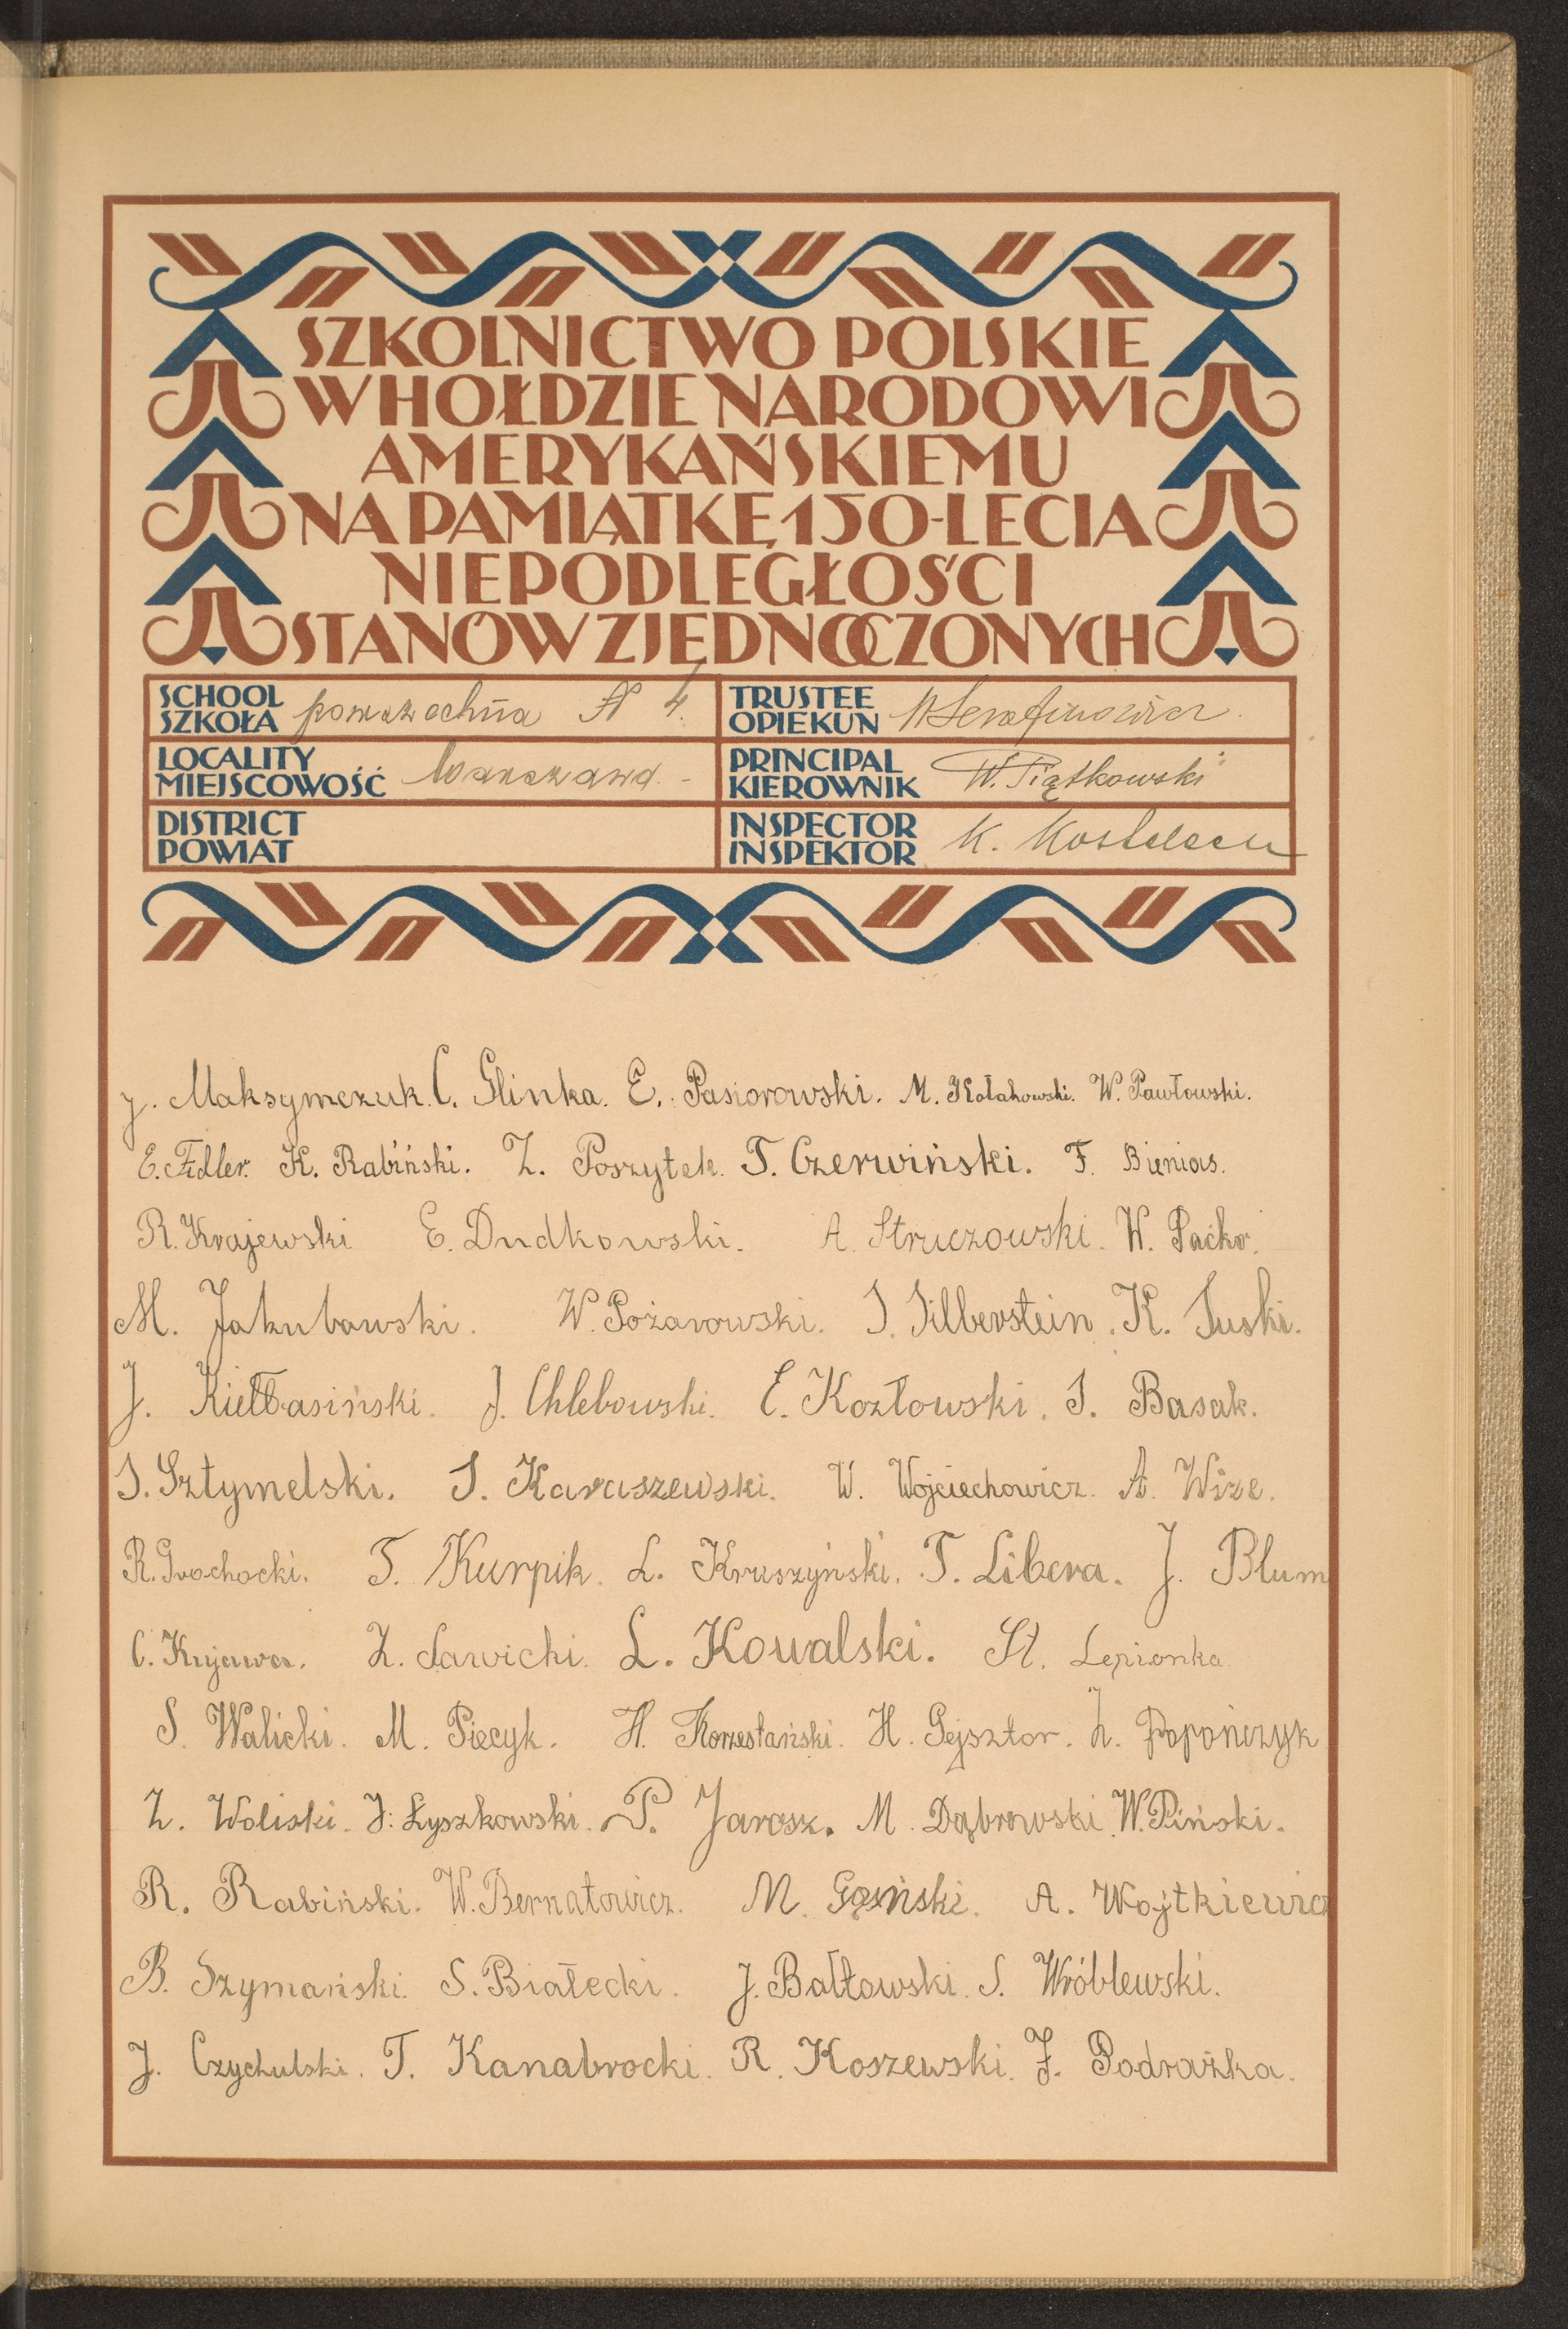 SZKOLNICTWO POLSKIE
W HOŁDZIE NARODOWI
AMERYKAŃSKIEMU
NA PAMIĄTKĘ 150-LECIA
NIEPODLEGŁOŚCI
STANÓW ZJEDNOCZONYCH
SCHOOL SZKOŁA powszechna N 4.
TRUSTEE OPIEKUN Serafinowicz.
LOCALITY MIEJSCOWOŚĆ Warszawa -
PRINCIPAL KIEROWNIK W. Piątkowski
DISTRICT POWIAT
INSPECTOR INSPEKTOR K.
J. Maksymczuk. C. Glinka. E. Pasiorowski. M. Kołakowski. W. Pawłowski.
E. Fidler. K. Rabiński. Z. Poszytek. T. Czerwiński. F. Bienias.
R. Krajewski E. Dudkowski. A. Struczowski. W. Paćko.
M. Jakubowski. W. Pożarowski. J. Silberstein. K. Tuski.
J. Kiełbasiński. J. Chlebowski. E. Kozłowski. S. Basak.
S. Sztymelski. S. Karaszewski. W. Wojciechowicz. A. Wize.
R. Grochocki. T. Kurpik. L. Kruszyński. T. Libera. J. Blum
C. Kujawa. Z. Sawicki. L. Kowalski. St. Lepionka.
S. Walicki. M. Piecyk. H. Korzestański. H. Gejsztor. Z. Popończyk
Z. Woliski. J. Łyszkowski. P. Jarosz. M. Dąbrowski. W. Piński.
R. Rabiński. W. Bernatowicz. M. Gąsiński. A. Wojtkiewicz
B. Szymański. S. Białecki. J. Bałtowski. S. Wróblewski.
J. Czychulski. T. Kanabrocki. R. Koszewski. F. Podrażka.